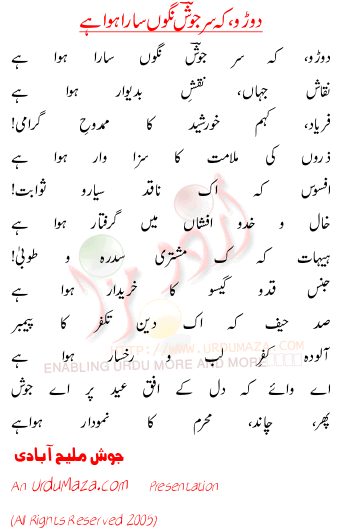 دوڑو، کہ سر جوشؔ نگوں سارا ہوا ہے
دوڑو، کہ سر جوشؔ نگوں سارا ہوا ہے
نقاش جہاں، نقش بدیوار ہوا ہے
فریاد، کہ ہم خورشید کا ممدوح گرامی!
ذروں کی ملامت کا سزا وار ہوا ہے
افسوس کہ اک ناقد سیارو ثوابت!
خال و خدو افشاں میں گرفتار ہوا ہے
ہیہات کہ ک مشتری سدرہ و طوبیٰ!
جنس قدو گیسو کا خریدار ہوا ہے
صد حیف کہ اک دین تفکر کا پیمبر
آلودہ کفر لب و رخسار ہوا ہے
اے وائے کہ دل کے افق عید پر اے جوش
پھر، چاند، محرم کا نمودار ہواہے
جوش ملیح آبادی
اردو مزا
HTTP://WWW.URDUMAZA.COM
ENABLING URDU MORE AND MORE
An UrduMaza.com Presentation
(All Rights Reserved 2005)